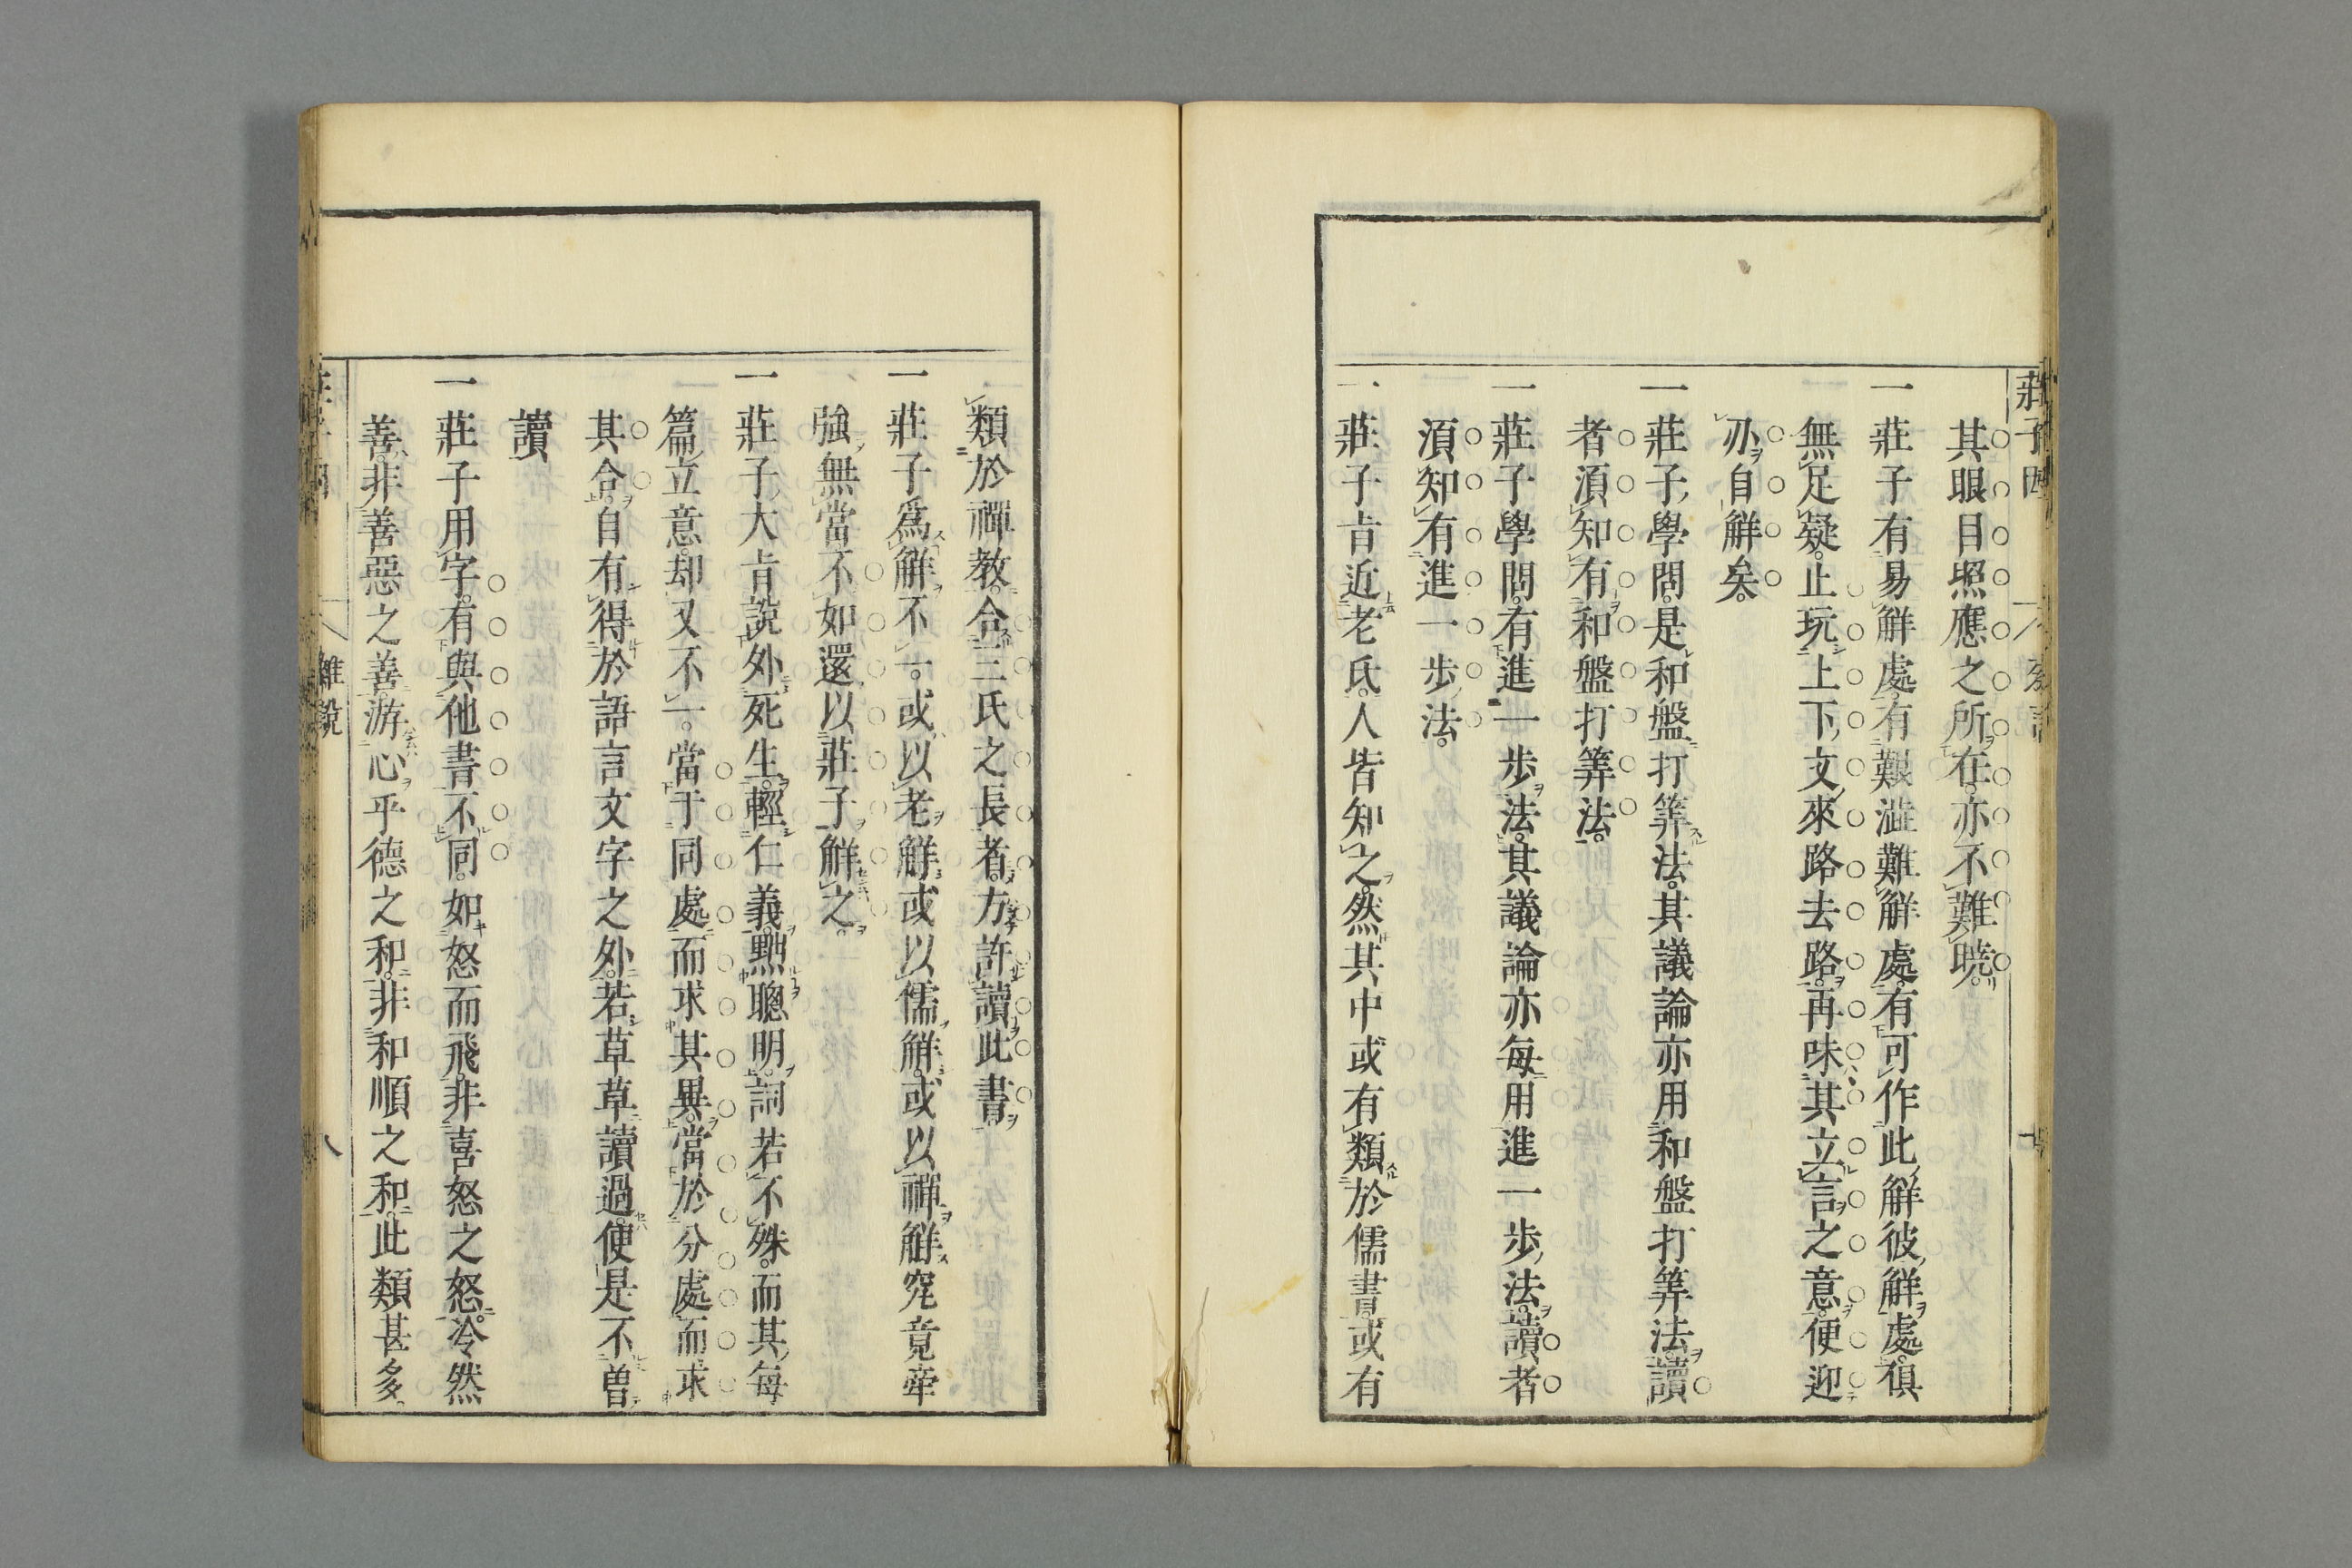 莊子因
其眼目照應之所在。亦不難曉。
一莊子有易解處。有艱澁難解處。有可作此解彼解處。禎
無足疑。止玩上下文來路去路。再味其立言之意。便迎
刃自解矣。
一莊子學問。是和盤打筭法。其議論亦用和盤打筭法。讀
者湏知有和盤打筭法。
一莊子學問。有進一步法。其議論亦每用進一步法。讀者
湏知有進一步法。
一莊子旨近老氏。人皆知之。然其中或有類於儒書。或有
類於禪教。合三氏之長者。方許讀此書
一莊子爲解不一。或以老解或以儒解。或以禪解究竟牽
強無當不如還以莊子解之。
一莊子大旨説外死生。輕仁義。黜聰明。詞若不殊。而其每
篇立意。却又不一。當于同處而求其異。當於分處而求
其合。自有得於語言文字之外。若草草讀過。便是不曽
讀
一莊子用字。有與他書不同。如怒而飛。非喜怒之怒。冷然
善。非善惡之善。游心乎德之和。非和順之和。此類甚多。
雜説
八